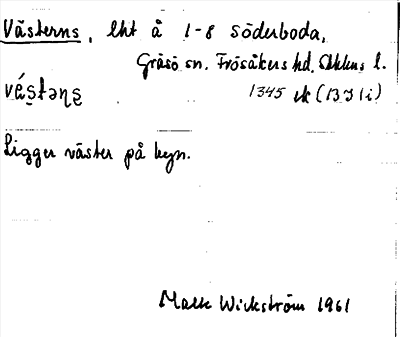 Västerns, lht å 1-8 Söderboda,
Gräsö sn. Frösåkers hd. Sthlms l.
vá̱stəṇs̱ 1345 ek (13 I 1i)
Ligger väster på byn.
Malte Wickström 1961